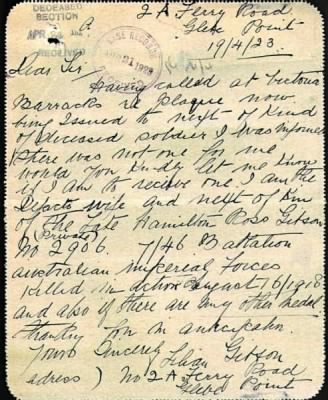 DECEASED
SECTION
2 A Ferry Road
Glebe Point
19/4/23.
Dear Sir
Having called at Victoria
Barracks re plaque now
being Issued to next of Kind
of deceased soldier I was informed
there was not one for me
would you Kindly let me Know
if I am to receive one. I am the
Defacto wife and next of Kin
of the late Hamilton Ross Gibson
(Private)
No 2906. 7/46 Battalion
Australian Imperial Forces
Killed in Action August 1918
and also if there are any other medal
thanking you in anticipation.
Yours Sincerely
Gibson
adress) No 2 A Ferry Road
Glebe Point